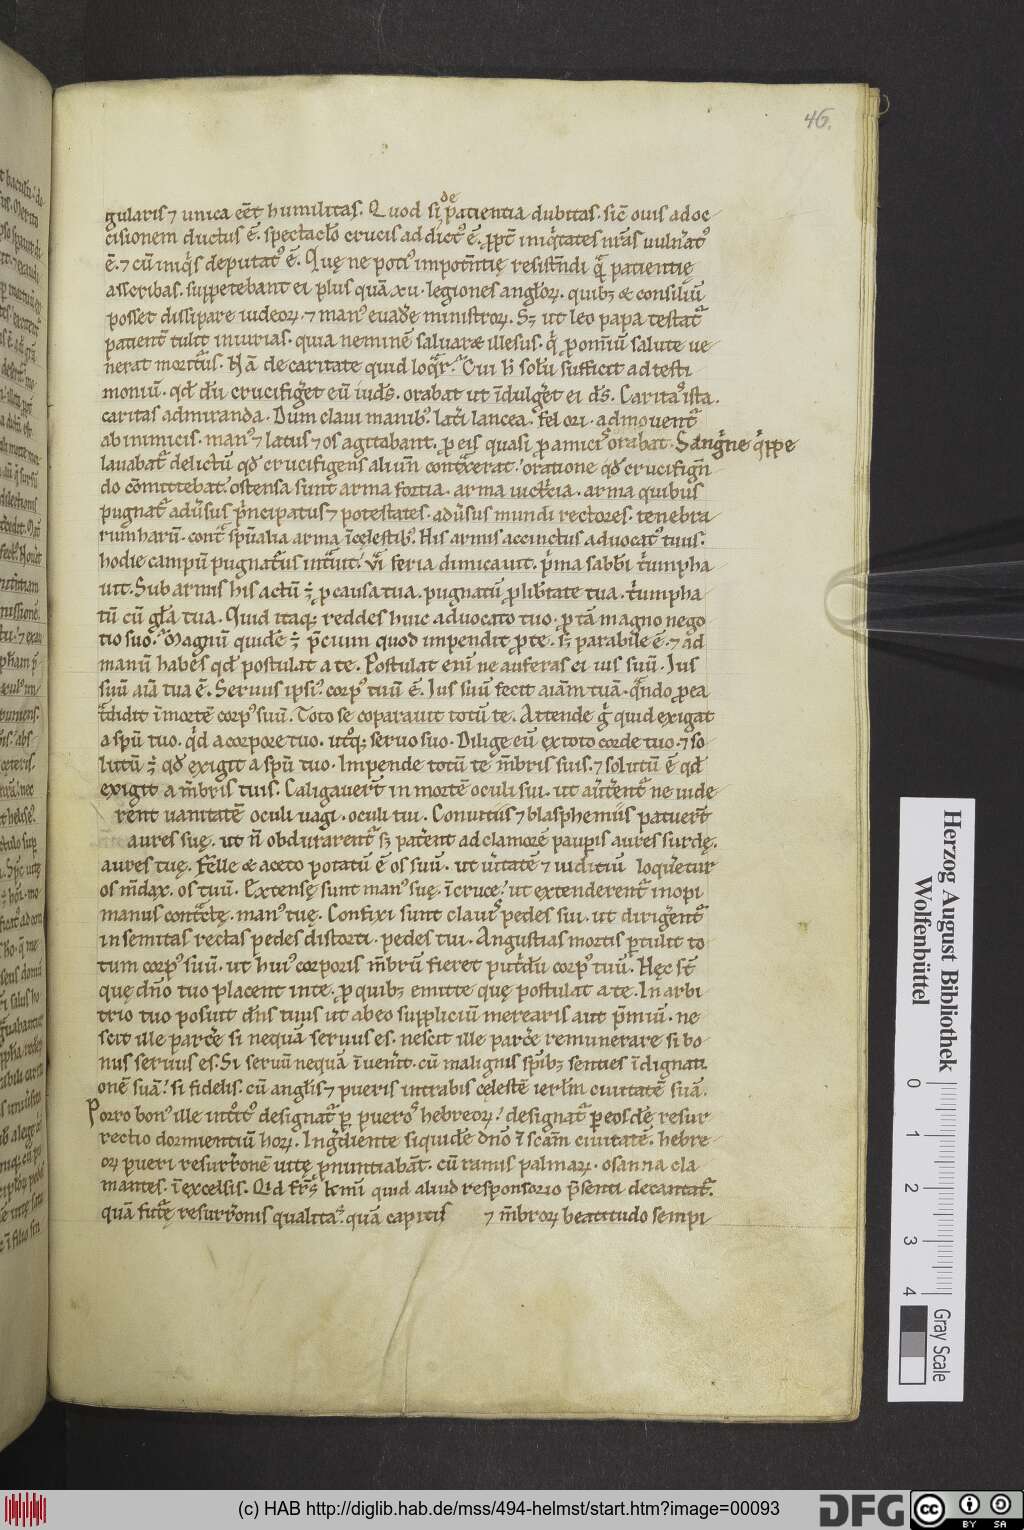 46.
gularis ⁊ unica eēt humilitas. Quod si de patientia dubitas. sic̄ ouis ad oc
cisionem ductus ē. spectac̄lo crucis addict᷒ ē. ꝓp̄t iniq̇tates nr̄as uuln̄at᷒
ē. ⁊ cū iniq̇s deputat᷒ ē. Quę ne poti᷒ impot̄ntię resist̄ndi q̄ patientię
asscribas. suppetebant ei plus quā xii. legiones angl̄oꝝ. quibꝫ & consiliū
posset dissipare iudeoꝝ. ⁊ man᷒ euad̄e ministroꝝ. Sꝫ ut leo papa testat̄
patient̄ tulit iniurias. quia neminē saluaræ illesus. q̇ ꝓ om̄iū salute ue
nerat morit̄us. Nā de caritate quid loq̄r. Cui h̄ solū sufficit ad testi
moniū. qd̄ dū crucifiḡet eū iud̄s. orabat ut īdulḡet ei d̄s. Carita᷒ ista.
caritas admiranda. Dum claui manib᷒. lat̄i lancea. fel ori. admouent̄
ab inimicis. man᷒ ⁊ latus ⁊ os agitabant. ꝓ eis quasi ꝓ amicis orabat. Sanḡne q̇ppe
lauabat̄ delictū qd̄ crucifigens aliūn cont̄xerat. oratione qd̄ crucifiḡn
do cōmittebat. ostensa sunt arma fortia. arma uict̄cia. arma quibus
pugnat̄ adūsus p̄ncipatus ⁊ potestates. adūsus mundi rectores. tenebra
rum harū. cont̄ sp̄ualia arma īcęlestib᷒. His armis accinctus aduocat᷒ tuus.
hodie campū pugnat̄us int̄uit. vi̅ feria dimicauit. p̄ma sabb̄i t̄umpha
uit. Sub armis his actū ÷ ꝓ causa tua. pugnatū ꝓ lib̄tate tua. t̄umpha
tū cū gl̄a tua. Quid itaqꝫ reddes huic aduocato tuo. ꝓ tā magno nego
tio suo. Magnū quidē ÷ p̄cium quod impendit ꝓ te. sꝫ parabile ē. ⁊ ad
manū habes qd̄ postulat a te. Postulat eni̅ ne auferas ei ius suū. Ius
suū aīa tua ē. Seruus ipsi᷒ corp᷒ tuū ē. Ius suū fecit aīam tuā. q̄ndo ꝓ ea
t̄didit ī mortē corp᷒ suū. Toto se coparauit totū te. Attende ḡ quid exigat
a sp̄u tuo. q̇d a corpore tuo. ut̄qꝫ seruo suo. Dilige eū ex toto corde tuo. ⁊ so
lutū ÷ qd̄ exigit a sp̄u tuo. Impende totū te m̄bris suis. ⁊ solutū ē qd̄
exigit a m̄bris tuis. Caligauer̄t in mortē oculi sui. ut au̅t̄ent̄ ne uide
rent uanitatē oculi uagi. oculi tui. Conuitiis ⁊ blasphemiis patuer̄t
aures suę. ut n̄ obdurarent̄ sꝫ pat̄ent ad clamorē pauꝑis aures surdę.
aures tuę. Felle & aceto potatū ē os suū. ut ūitatē ⁊ iuditiū loq̄retur
os m̄dax. os tuū. Extensę sunt man᷒ suę. ī cruce. ut extenderent̄ inopi
manus cont̄ctę. man᷒ tuę. Confixi sunt clauis pedes sui. ut diriḡent̄
in semitas rectas pedes distorti. pedes tui. Angustias mortis ꝑtulit to
tum corp᷒ suū. ut hui᷒ corporis m̄brū fieret put̄dū corp᷒ tuū. Hęc sn̄t
que dn̄o tuo placent in te. ꝓ quibꝫ emitte quę postulat a te. In arbi
trio tuo posuit dn̄s tuus ut ab eo suppliciū merearis aut p̄miū. ne
scit ille parc̄e si nequā seruus es. nescit ille parc̄e remunerare si bo
nus seruus es. Si seruū nequā īuen̄it. cū malignis sp̄ibꝫ senties īdignati
onē suā. si fidelis. cū angl̄is ⁊ pueris intrabis cęlestē ierl̄m ciuitatē suā.
Porro bon᷒ ille int̄oit᷒ designat̄ ꝑ pueros hebreoꝝ. designat̄ ꝑ eosdē resur
rectio dormientiū hoꝝ. Inḡdiente siquidē dn̄o ī scām ciuitatē. hebre
oꝝ pueri resurr̄onē uitę ꝓnuntiabāt. cū ramis palmaꝝ. osanna cla
mantes. ī excelsis. Qid fr̄s km̄i quid aliud responsorio p̄senti decantat̄.
quā fut̄ę resurr̄onis qualita᷒. quā capitis ⁊ m̄broꝝ beatitudo sempi
Herzog August Bibliothek
Wolfenbüttel
0 1 2 3 4
Gray Scale
(c) HAB http://diglib.hab.de/mss/494-helmst/start.htm?image=00093
DFG
cc
BY SA